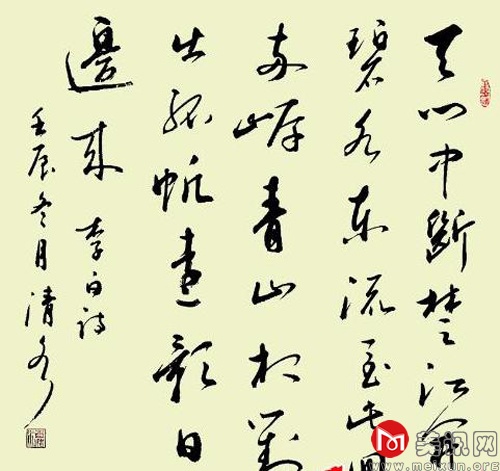 天门中斷楚江开
碧水东流至此回
两岸青山相对
出孤帆遠影日
邊来 李白诗
壬辰冬月清
美讯网
www.meixun.org